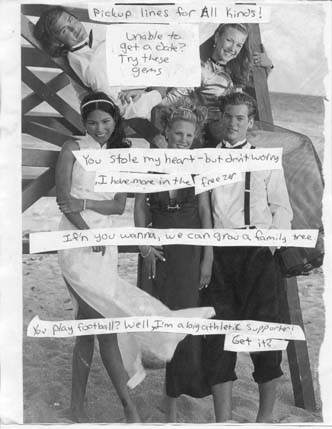 Pickup lines for All kinds!
Unable to
get a date?
Try these
gems
You stole my heart - but don't worry
, I have more in the freezer
If'n you wanna, we can grow a family tree
You play football? Well, I'm a big athletic supporter!
Get it?